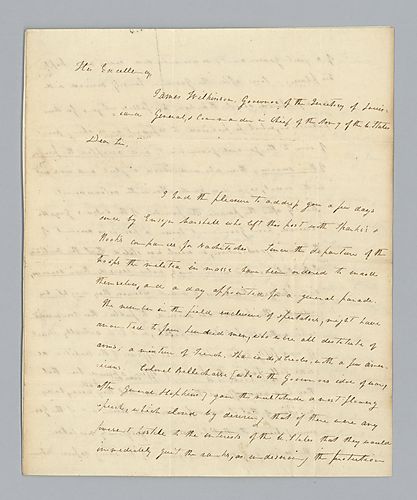 His Excellency
James Wilkinson, Governor of the Territory of Louis-
iana General, & Commander in Chief of the Army of the U States
Dear Sir,
I had the pleasure to address you a few days
since by Ensign Marshall who left this post with Spark's &
companies for Nachitoches. Since the departure of the
troops the militia in masse have been ordered to enroll
themselves, and a day appointed for a general parade.
The number in the field exclusive of spectators, might have
amounted to four hundred men, who were all destitute of
arms, a mixture of French, Spaniards, with a few amer-
icans. Colonel (who is the Governors aide of
after General Hopkins) gave the multitude a most flaming
speech, which closed by desiring that if there were any
present hostile to the interests of the U. States that they would
immediately quit the ranks, as undeserving the protection